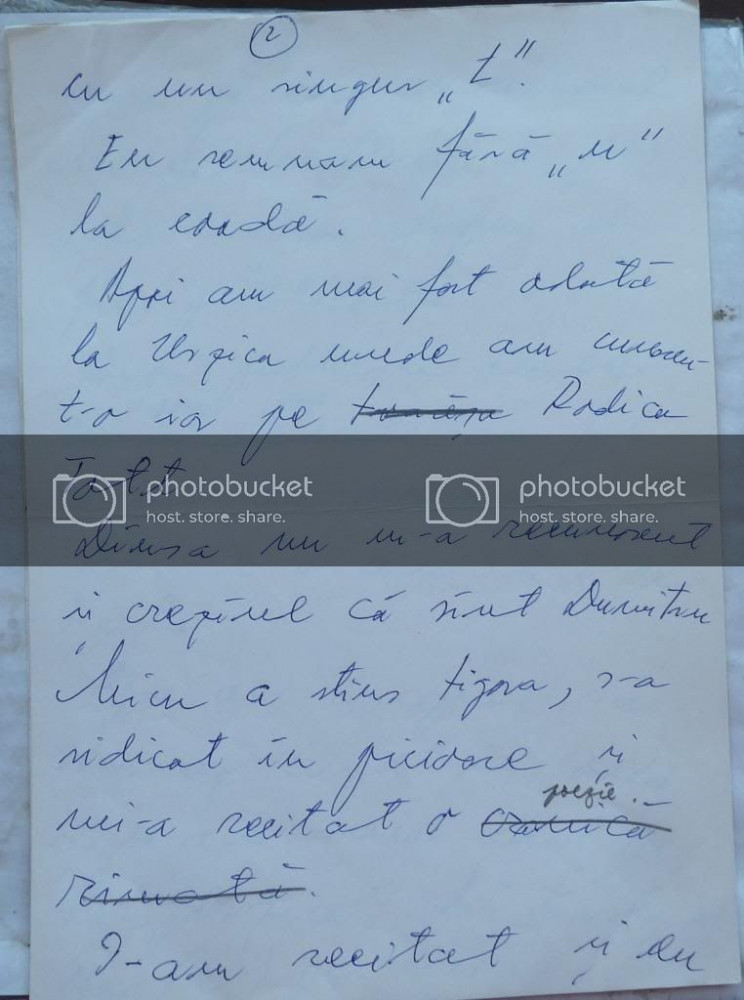 2
cu un singur „t”.
Eu semnam fără „u”
la coadă.
Apoi am mai fost odată
la Urzica unde am cunoscu-
t-o iar pe Rodica
Tott.
photobucket photobucket
host. store. share. host. store. share.
Dînsa nu m-a recunoscut
și crezînd că sînt Dumitru
Micu a stins țigara, s-a
ridicat în picioare și
poezie.
mi-a recitat o cronică
rimată.
I-am recitat și eu